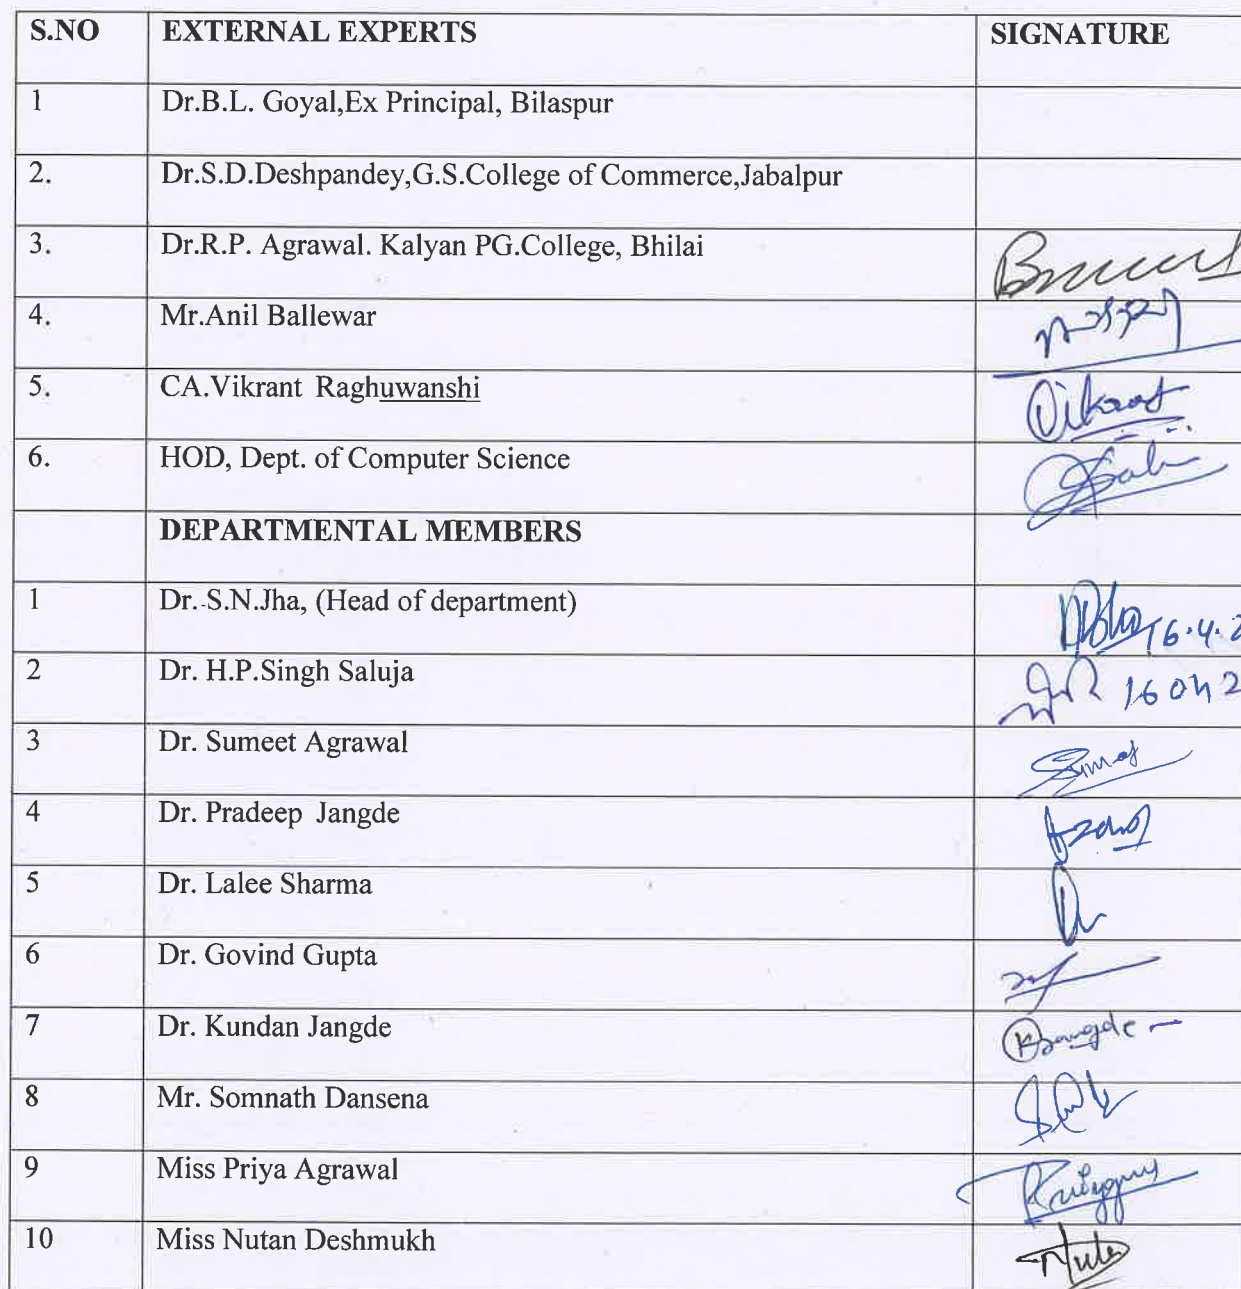 S.NO EXTERNAL EXPERTS SIGNATURE
1 Dr.B.L. Goyal,Ex Principal, Bilaspur
2. Dr.S.D.Deshpandey,G.S.College of Commerce,Jabalpur
3. Dr.R.P. Agrawal. Kalyan PG.College, Bhilai
4. Mr.Anil Ballewar
5. CA.Vikrant Raghuwanshi Vikrant
6. HOD, Dept. of Computer Science
DEPARTMENTAL MEMBERS
1 Dr. S.N.Jha, (Head of department) 16.4.2
2 Dr. H.P.Singh Saluja 16 04 2
3 Dr. Sumeet Agrawal
4 Dr. Pradeep Jangde
5 Dr. Lalee Sharma
6 Dr. Govind Gupta
7 Dr. Kundan Jangde KJangde
8 Mr. Somnath Dansena
9 Miss Priya Agrawal
10 Miss Nutan Deshmukh